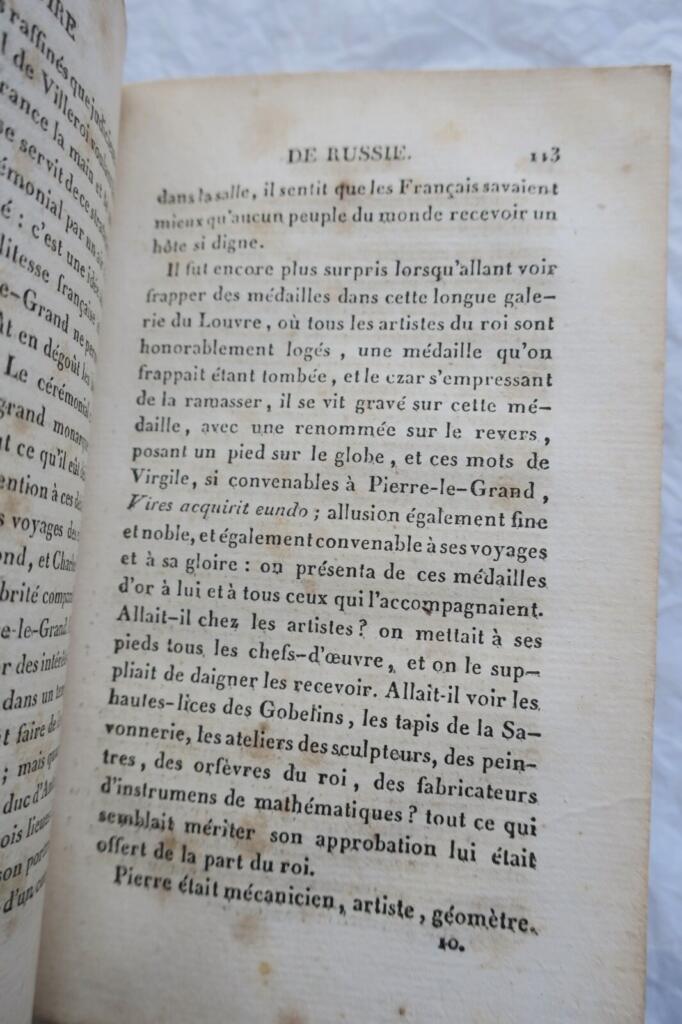 OIRE
raffinés que
de Villeroi
rance la main et
se servit de ce
émonial par un
é : c'est une
litesse française
e-le-Grand ne
ût en dégoût les
Le cérémonial
grand monarque
t ce qu'il eût
ention à ces
s voyages des
ond, et Charles
brité
e-le-Grand
r des intérêts
dans un
t faire de
; mais
duc d'An
ois lieues
son
d'un
DE RUSSIE. 113
dans la salle, il sentit que les Français savaient
mieux qu'aucun peuple du monde recevoir un
hôte si digne.
Il fut encore plus surpris lorsqu'allant voir
frapper des médailles dans cette longue gale-
rie du Louvre, où tous les artistes du roi sont
honorablement logés, une médaille qu'on
frappait étant tombée, et le czar s'empressant
de la ramasser, il se vit gravé sur cette mé-
daille, avec une renommée sur le revers,
posant un pied sur le globe, et ces mots de
Virgile, si convenables à Pierre-le-Grand,
Vires acquirit eundo ; allusion également fine
et noble, et également convenable à ses voyages
et à sa gloire : on présenta de ces médailles
d'or à lui et à tous ceux qui l'accompagnaient.
Allait-il chez les artistes ? on mettait à ses
pieds tous les chefs-d'œuvre, et on le sup-
pliait de daigner les recevoir. Allait-il voir les
hautes-lices des Gobelins, les tapis de la Sa-
vonnerie, les ateliers des sculpteurs, des pein-
tres, des orfèvres du roi, des fabricateurs
d'instrumens de mathématiques ? tout ce qui
semblait mériter son approbation lui était
offert de la part du roi.
Pierre était mécanicien, artiste, géomètre.
10.